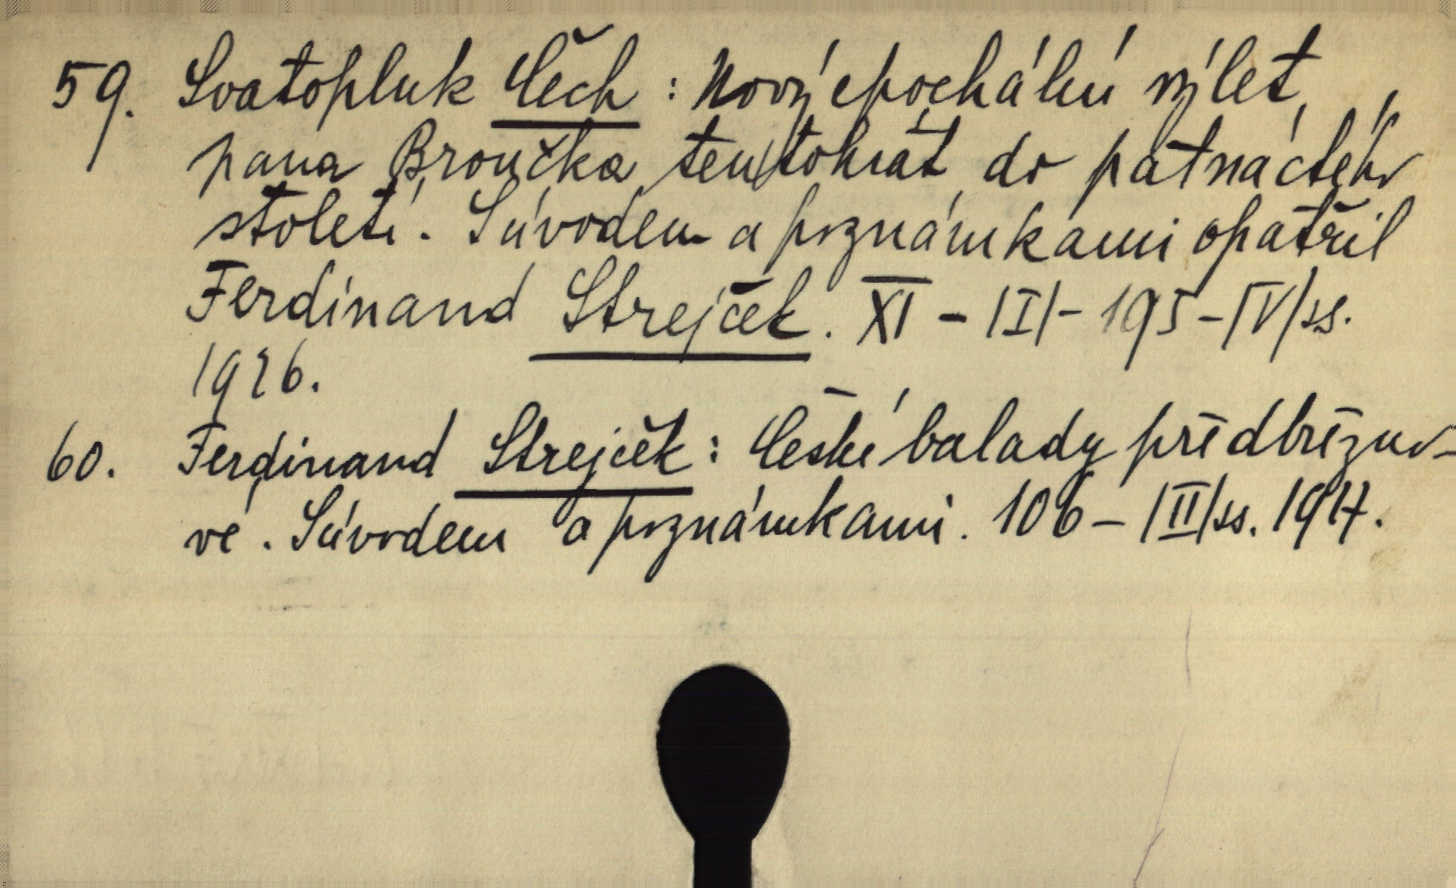 59. Svatopluk Čech : Nový epochální výlet
pana Broučka tentokrát do patnáctého
století. S úvodem a poznámkami opatřil
Ferdinand Strejček. XI - |I| - 195 - |IV| ss.
1926.
60. Ferdinand Strejček : České balady předbřezno-
vé. S úvodem a poznámkami. 106 - |II| ss. 1917.